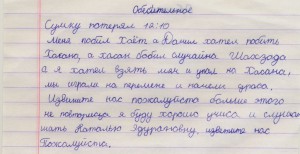 Обьеснительное
Сумку потерял 12:10
Меня побил Хаёт а Данил хател побить
Хасана, а хасан бобил случайна Шахзода
а я хател взять мяч и упал но Хасана,
мы играла на перемене и начели драса.
Извените нас пожалуйста больше этого
не повторится я буду хорошо учиса и слушаса
мать Наталью Эдурафовну, извените нас
Пожалуйста.